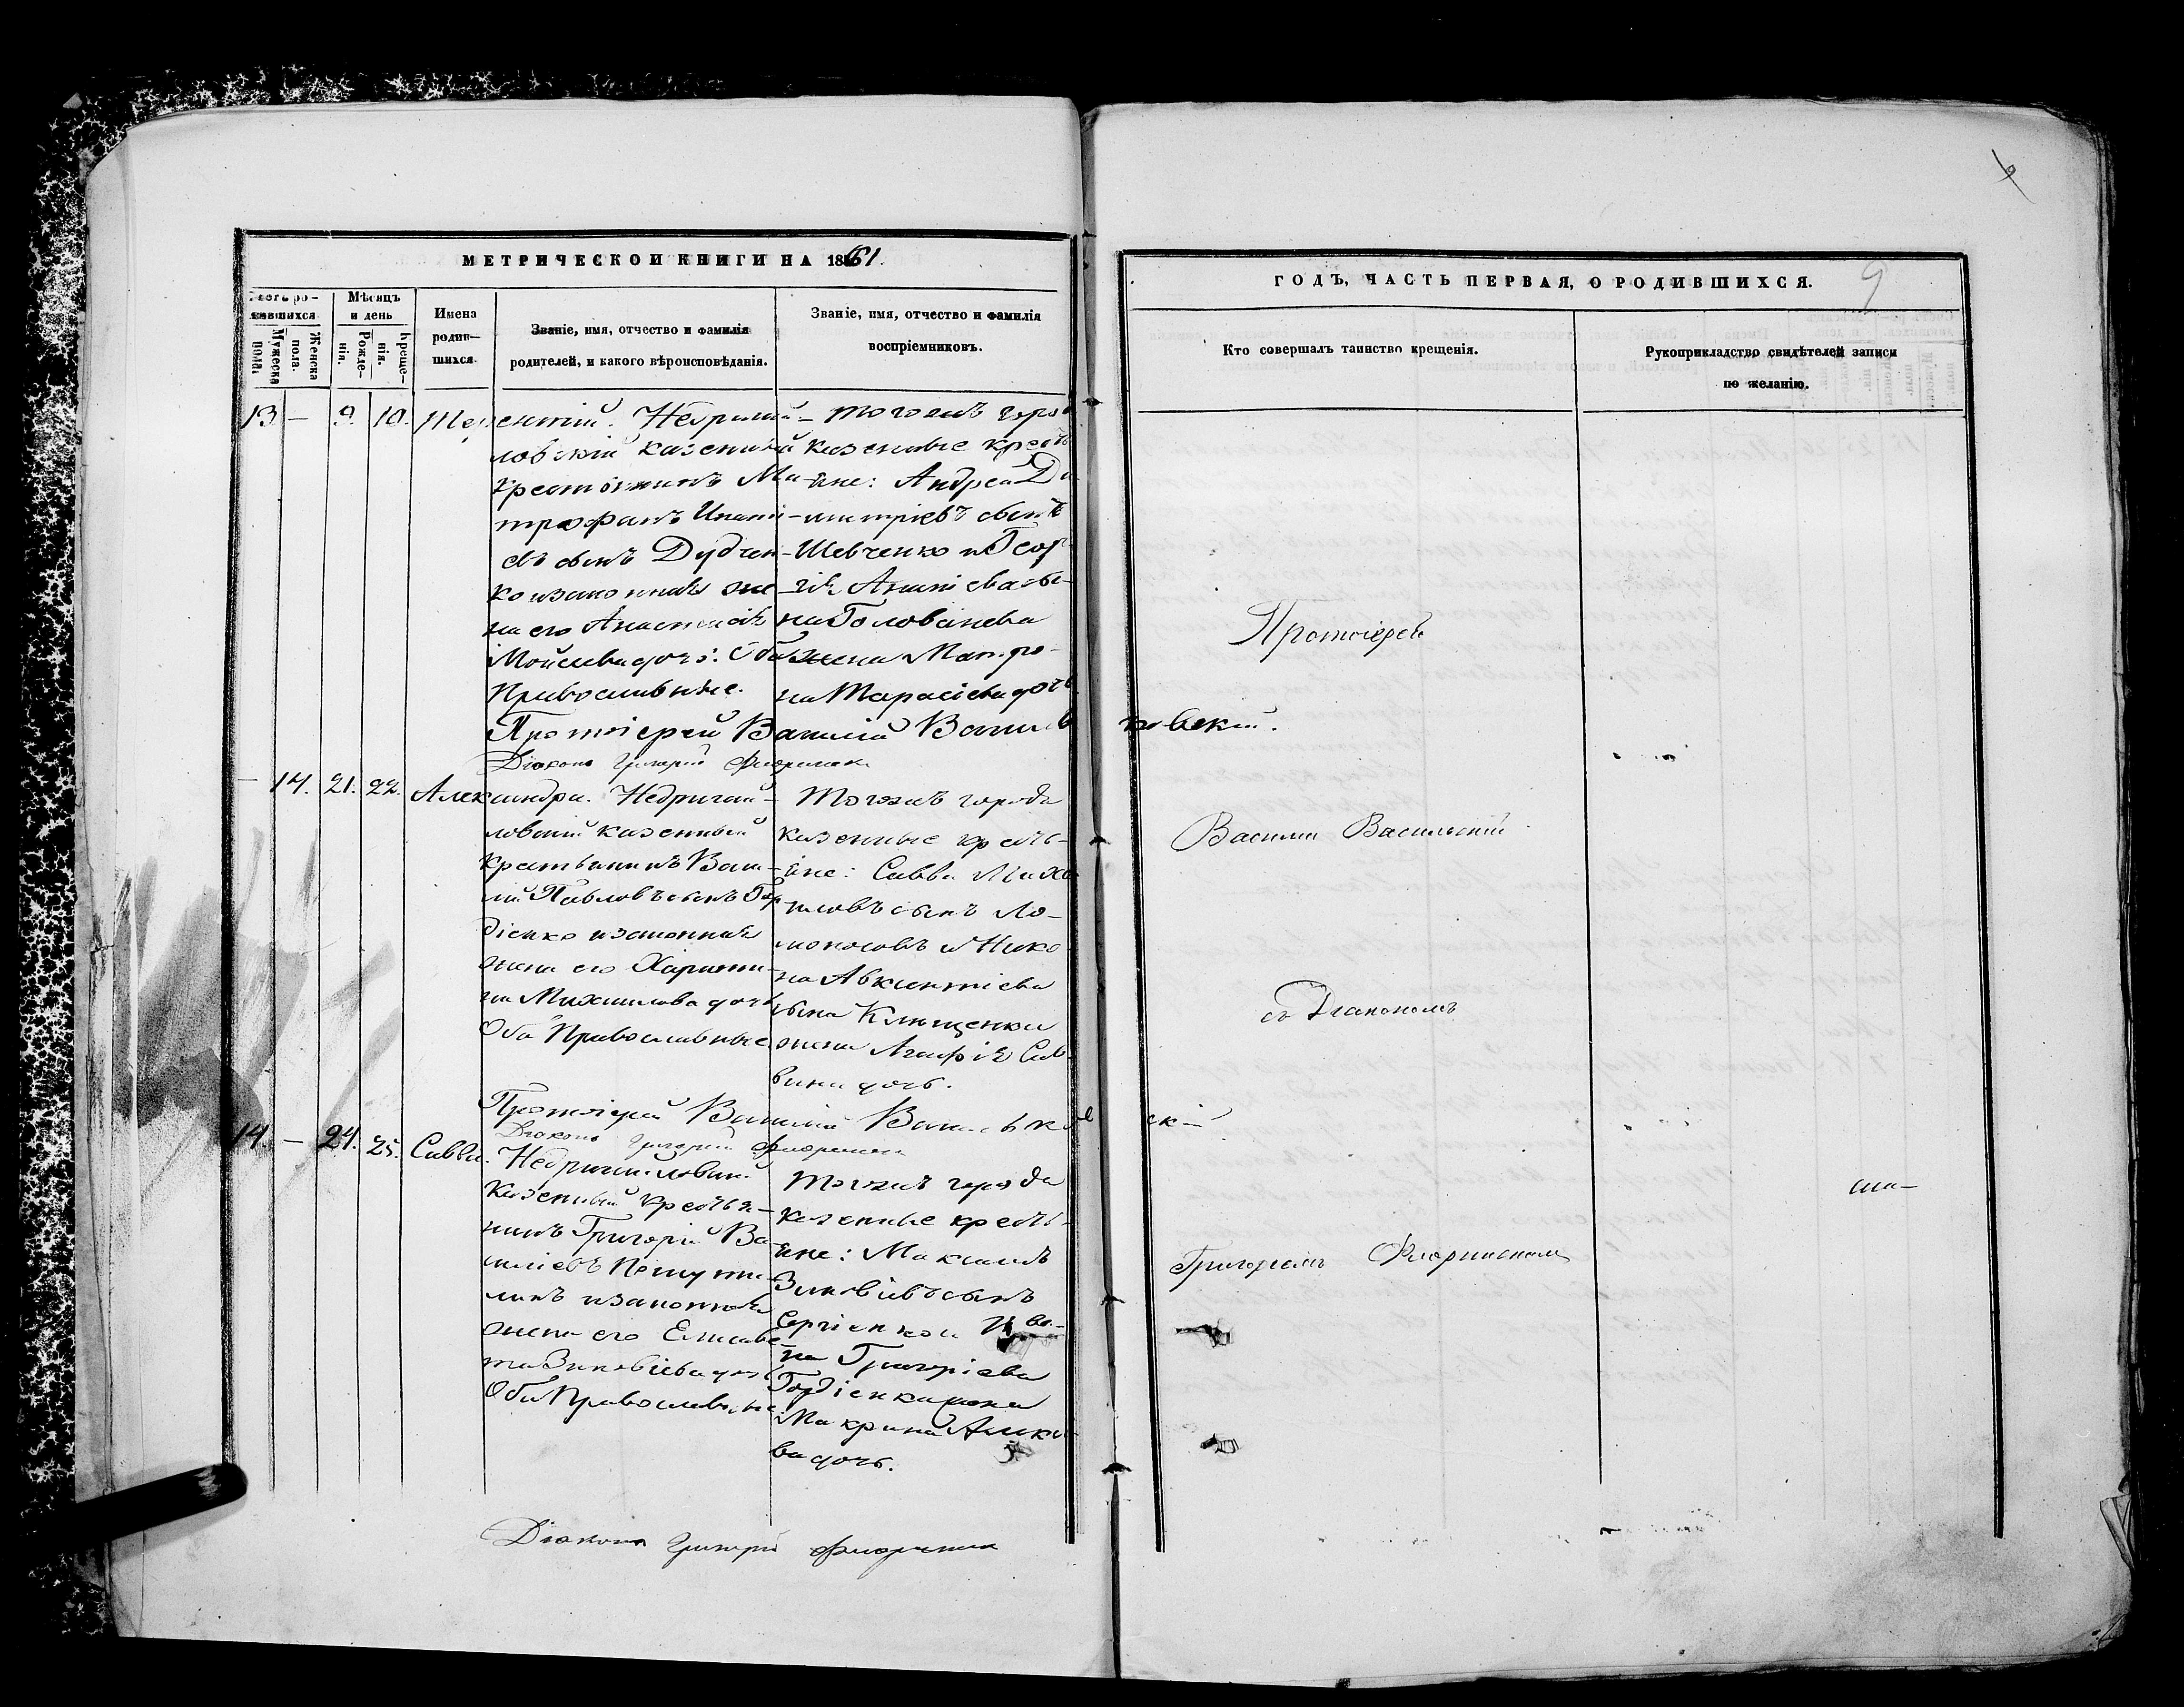 МЕТРИЧЕСКОЙ КНИГИ НА 1861.
ГОДЪ, ЧАСТЬ ПЕРВАЯ, О РОДИВШИХСЯ.
9
Мѣсяцъ
и день
Мужеска
пола.
Женска
пола.
Рожде-
нія.
Креще-
нія.
Имена
родив-
шихся.
Званіе, имя, отчество и фамилія
родителей, и какого вѣроисповѣданія.
Званіе, имя, отчество и фамилія
воспріемниковъ.
Кто совершалъ таинство крещенія.
Рукоприкладство свидѣтелей записи
по желанію.
13 — 9. 10.
ловскій казенный
крестьянинъ Ми-
трофанъ
евъ сынъ Дудчен-
ко изаконная же-
на его Анастасія
Мойсеева дочь: Оба
Православные.
Тогожъ горо
казенные кресть-
яне: Андрей Ди-
митріевъ сынъ
Шевченко и Геор-
гія Ананіева сы-
на Голованева
жена Матро-
на Тарасіева дочь
Протоіерей Василій Васильковскій.
Діаконъ Григорій
— 14. 21. 22. Александра. Недригай-
ловскій казенный
крестьянинъ Васи-
лій Павловъ сынъ Гор-
діенко изаконная
жена его Харити-
на Михаилова дочь
Оба Православные
Тогожъ города
казенные кресть-
яне: Савва Миха
иловъ сынъ Ло-
моносовъ и Нико-
на Авксентіева
сына Клищенка
жена Агафія Сав-
вина дочь.
Протоіерей Василій Васильковскій
Діаконъ Григорій
14. — 24. 25. Савва. Недригайловскій
казенный крестья-
нинъ Григорій Ва-
силіевъ
линъ изаконная
жена его Елисаве-
та Зиновіева дочь
Оба Православные
Тогожъ города
казенные кресть-
яне: Максимъ
Зиновіевъ сынъ
Сергіенко и Ива-
на Григоріева
Гордіенка жена
Макрина
ва дочь.
Діаконъ Григорій
Протоіерей
Василій
съ Діакономъ
Григоріемъ